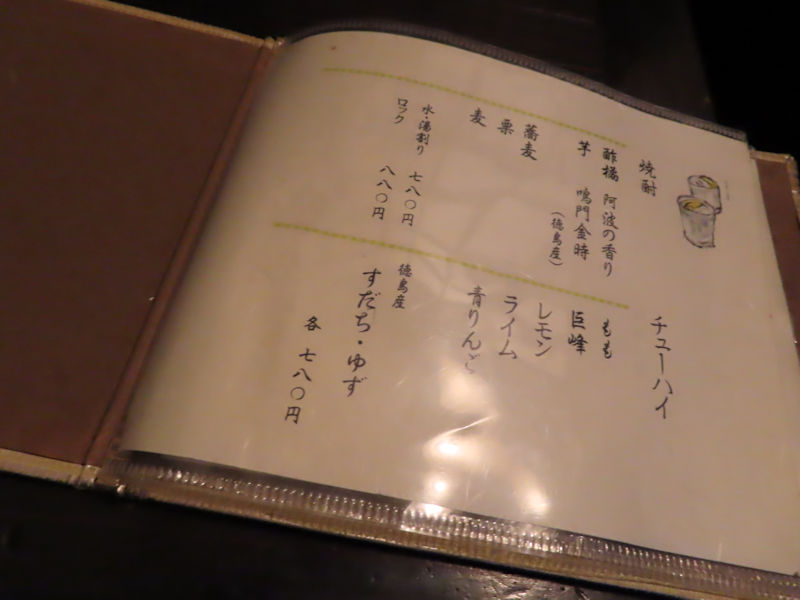 焼酎
酢橘 阿波の香り
芋 鳴門金時
(徳島産)
蕎麦
栗
麦
水・湯割り 七八〇円
ロック 八八〇円
チューハイ
もも
巨峰
レモン
ライム
青りんご
徳島産
すだち・ゆず
各 七八〇円